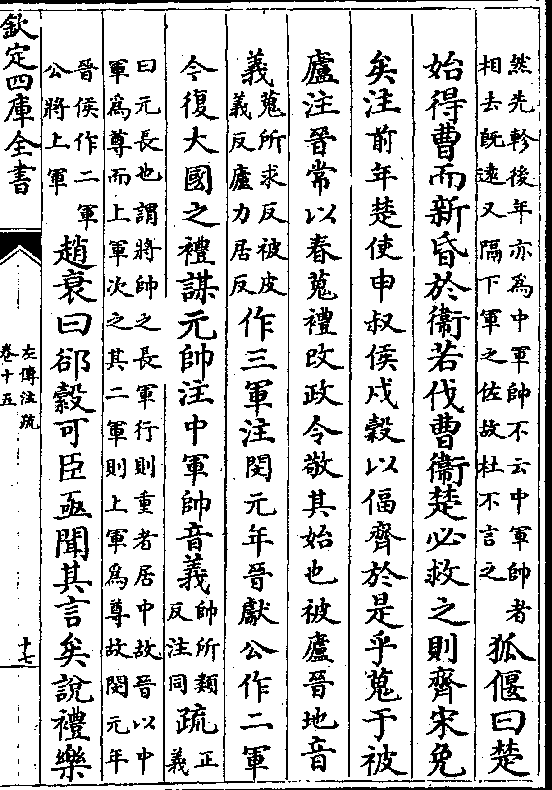 然先軫後年亦為中軍帥不云中軍帥者
相去既遠又隔下軍之佐故杜不言之
狐偃曰楚
始得曹而新昏於衛若伐曹衛楚必救之則齊宋免
矣注前年楚使申叔侯戍穀以偪齊於是乎蒐于被
廬注晉常以春蒐禮改政令敬其始也被廬晉地音
義
蒐所求反被皮
義反廬力居反
作三軍注閔元年晉獻公作二軍
今復大國之禮謀元帥注中軍帥音義
帥所類
反注同
疏
正
義
曰元長也謂將帥之長軍行則重者居中故晉以中
軍為尊而上軍次之其二軍則上軍為尊故閔元年
晉侯作二軍
公將上軍
趙衰曰郤縠可臣亟聞其言矣說禮樂
欽定四庫全書
左傳注疏
卷十五
十七